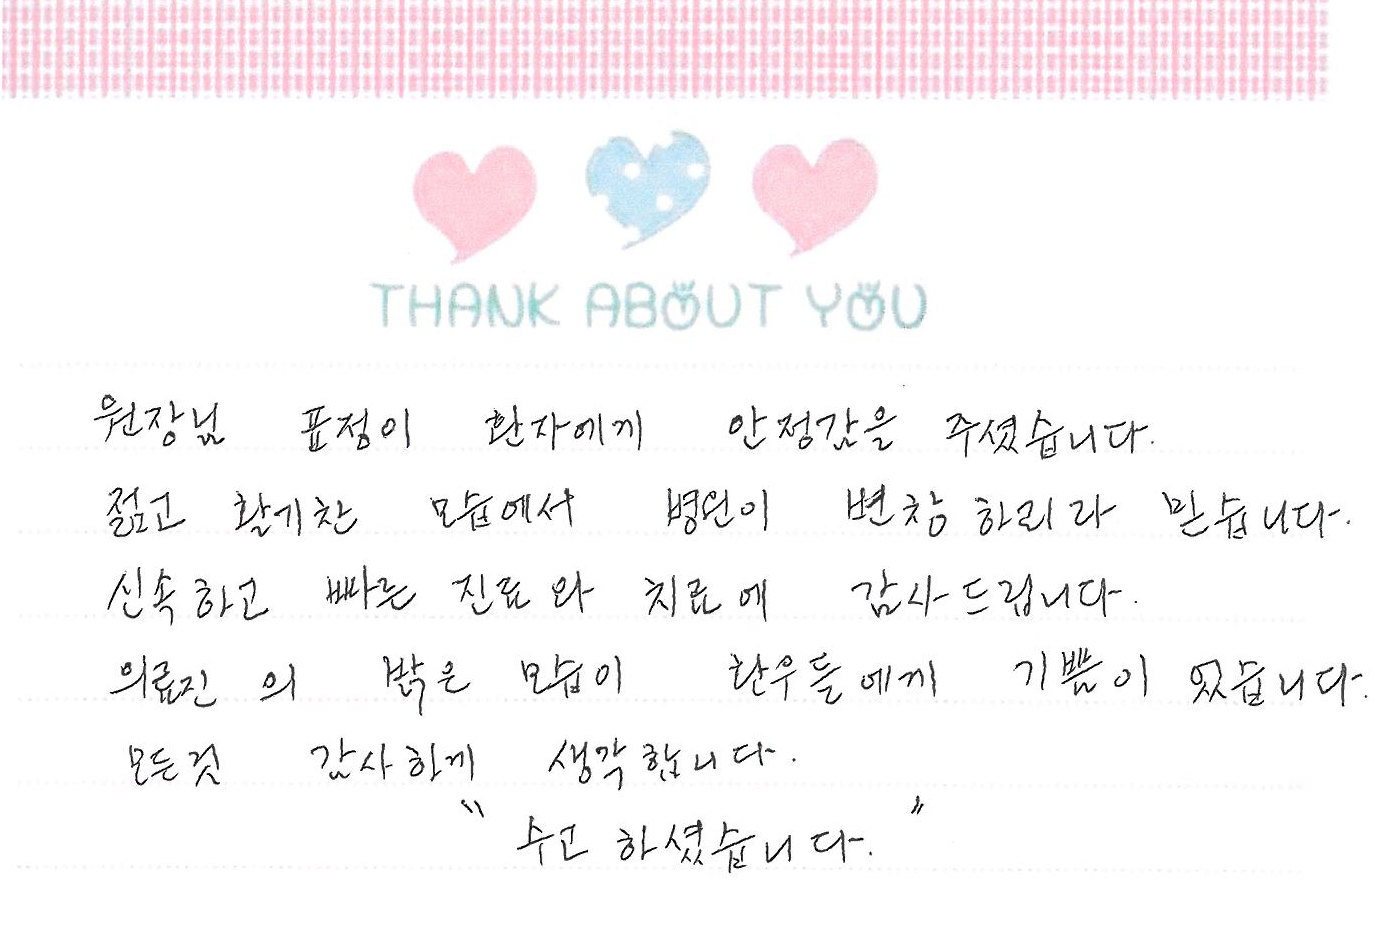 THANK ABOUT YOU
원장님 표정이 환자에게 안정감을 주셨습니다.
젊고 활기찬 모습에서 병원이 번창하리라 믿습니다.
신속하고 빠른 진료와 치료에 감사드립니다.
의료진의 밝은 모습이 환우들에게 기쁨이 있습니다.
모든것 감사하게 생각합니다.
" 수고하셨습니다. "